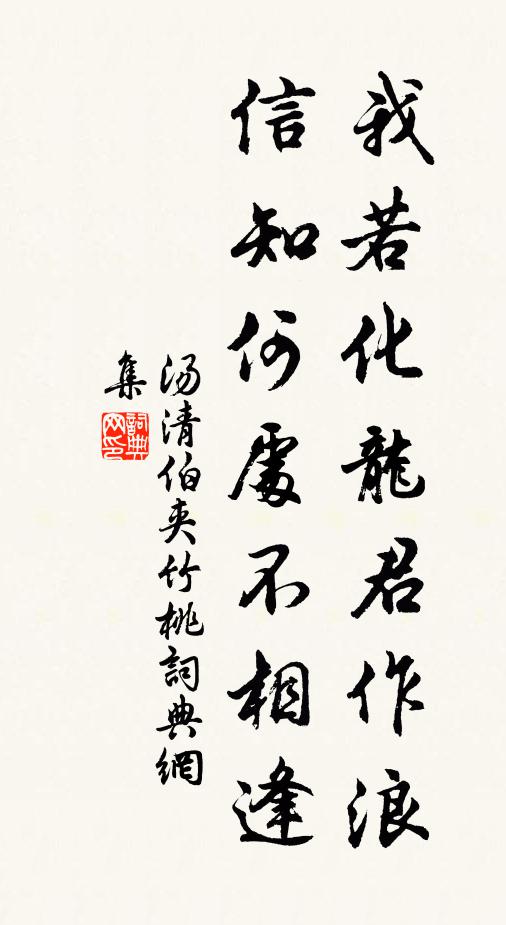 我若化龍君作浪
信知何處不相逢
汤清伯夾竹桃詞典網
集
詞典网印